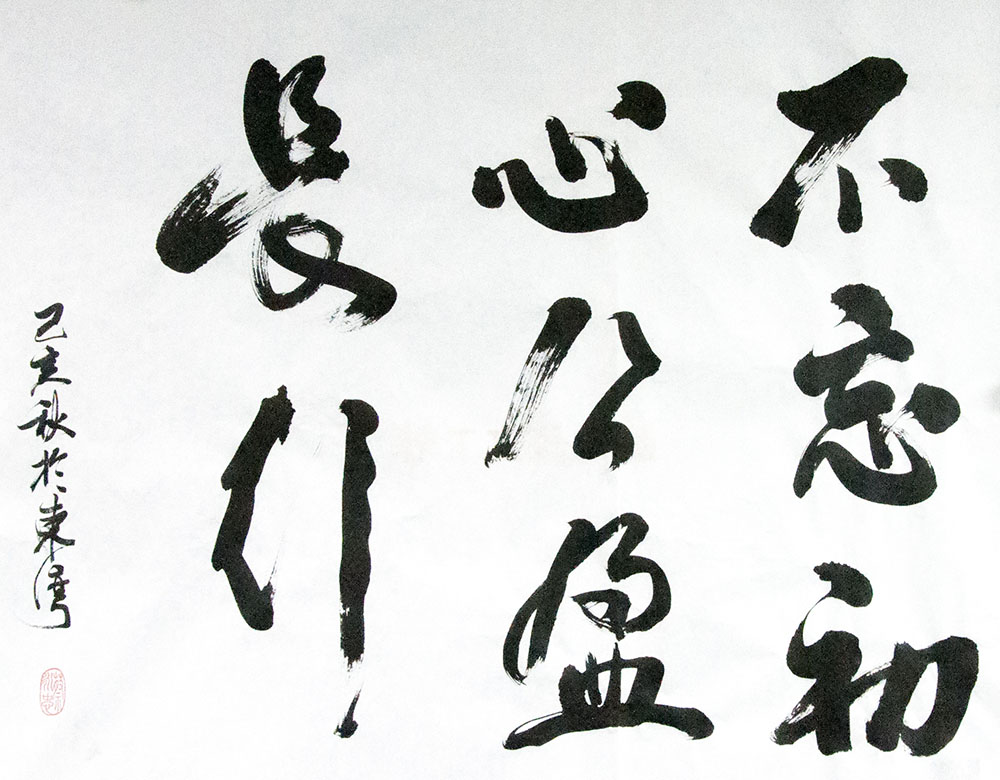 不忘初
心公盈
長行
己亥秋於東灣